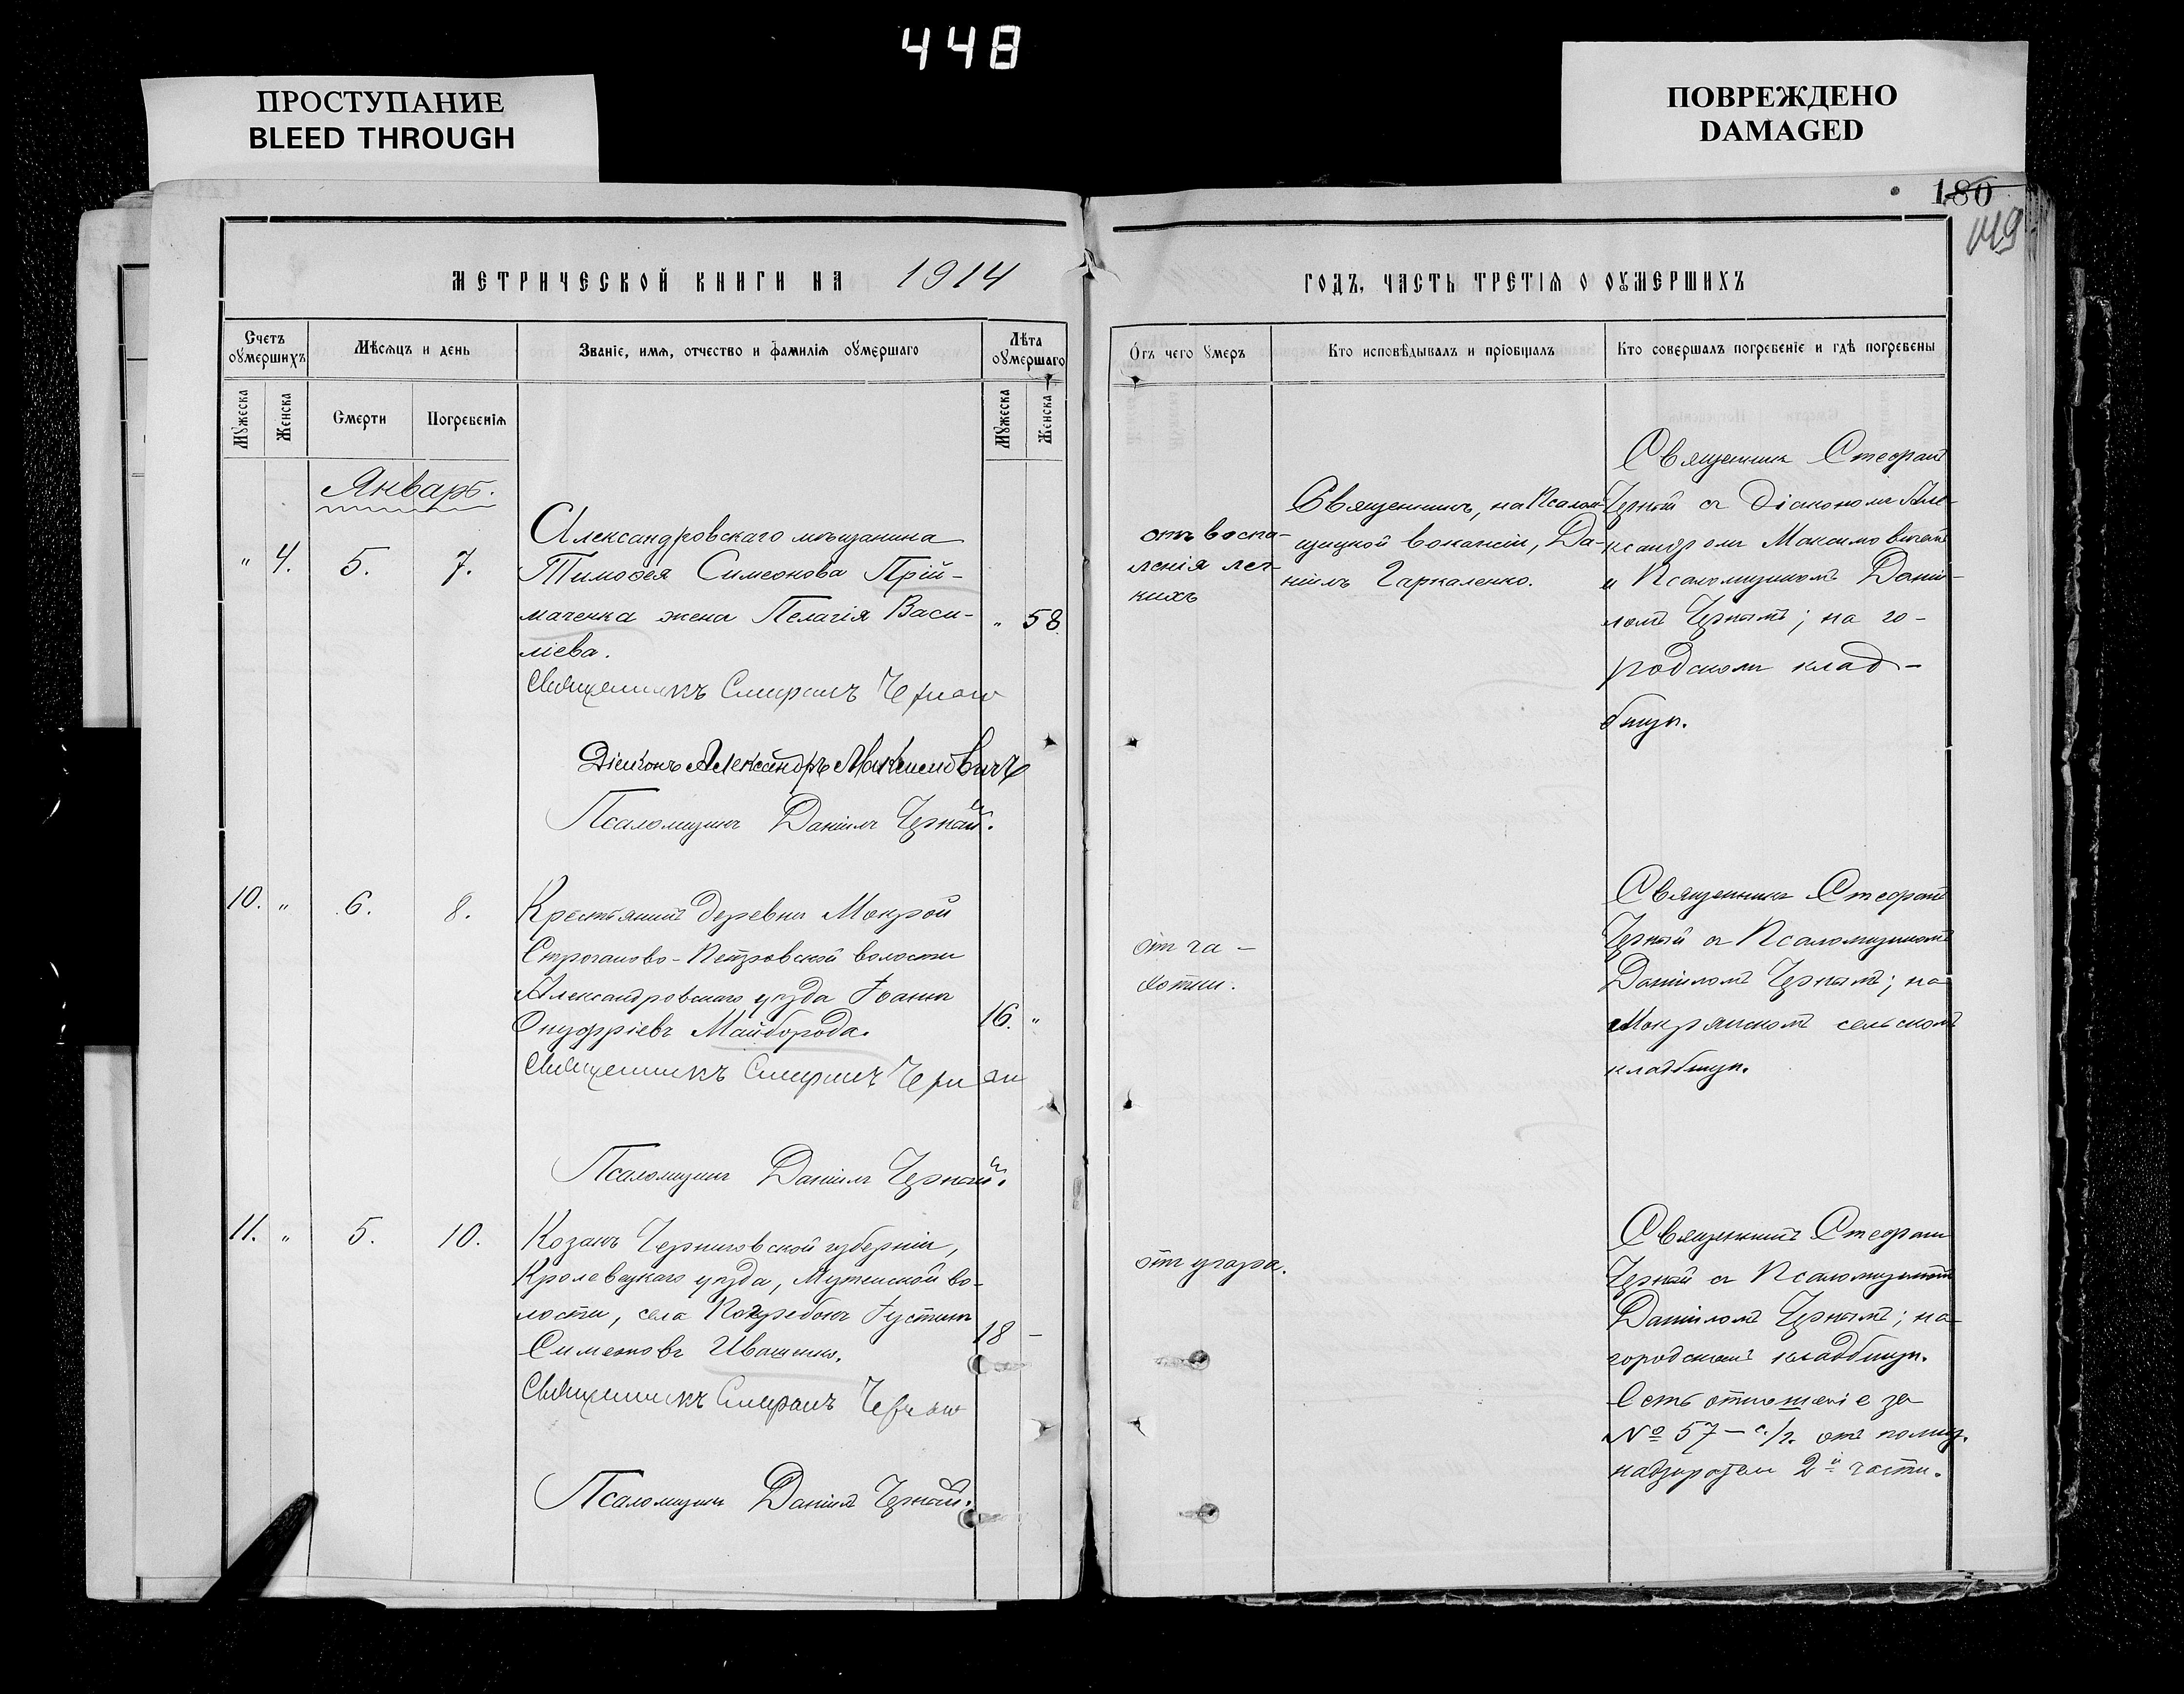 448
ПРОСТУПАНИЕ
BLEED THROUGH
ПОВРЕЖДЕНО
DAMAGED
180
149
МЕТРИЧЕСКОЙ КНИГИ НА 1914
ГОДЪ, ЧАСТЬ ТРЕТІѦ О ОУМЕРШИХЪ
Счетъ оумершихъ
Мѣсѧцъ и день
Званіе, имѧ, отчество и фамиліѧ оумершаго
Лѣта оумершаго
Отъ чего умеръ
Кто исповѣдывалъ и пріобщалъ
Кто совершалъ погребеніе и гдѣ погребены
Мужеска
Женска
Смерти
Погребеніѧ
Мужеска
Женска
Январь.
" 4. 5. 7.
Александровскаго мѣщанина
Тимофея Симеонова Прій-
маченка жена Пелагія Васи-
ліева.
" 58
Священникъ Стефанъ Черный
Діаконъ Александръ Максимовичъ
Псаломщикъ Даніилъ Черный.
отъ воспа-
ленія лег-
кихъ
Священникъ, на Псалом-
щицкой вакансіи, Да-
ніилъ Гаркаленко.
Священникъ Стефанъ
Черный съ діакономъ Але-
ксандромъ Максимовичемъ
и Псаломщикомъ Дані-
ломъ Чернымъ; на го-
родскомъ клад-
бищѣ.
10. " 6. 8.
Крестьянинъ деревни Мокрой
Строганово-Петровской волости
Александровскаго уѣзда Іоаннъ
Онуфріевъ Майборода.
16. "
Священникъ Стефанъ Черный
Псаломщикъ Даніилъ Черный.
отъ ча-
хотки.
Священникъ Стефанъ
Черный съ Псаломщикомъ
Даніиломъ Чернымъ; на
Мокрянскомъ сельскомъ
кладбищѣ.
11. " 5. 10.
Козакъ Черниговской губерніи,
Кролевецкаго уѣзда, Мутинской во-
лости, села Погребокъ Іустинъ
Симеоновъ Ивашенко.
18 -
Священникъ Стефанъ Черный
Псаломщикъ Даніилъ Черный.
отъ угара.
Священникъ Стефанъ
Черный съ Псаломщикомъ
Даніиломъ Чернымъ; на
городскомъ кладбищѣ.
Есть отношеніе за
№ 57 - с./г. отъ полиц.
надзирателя 2й части.